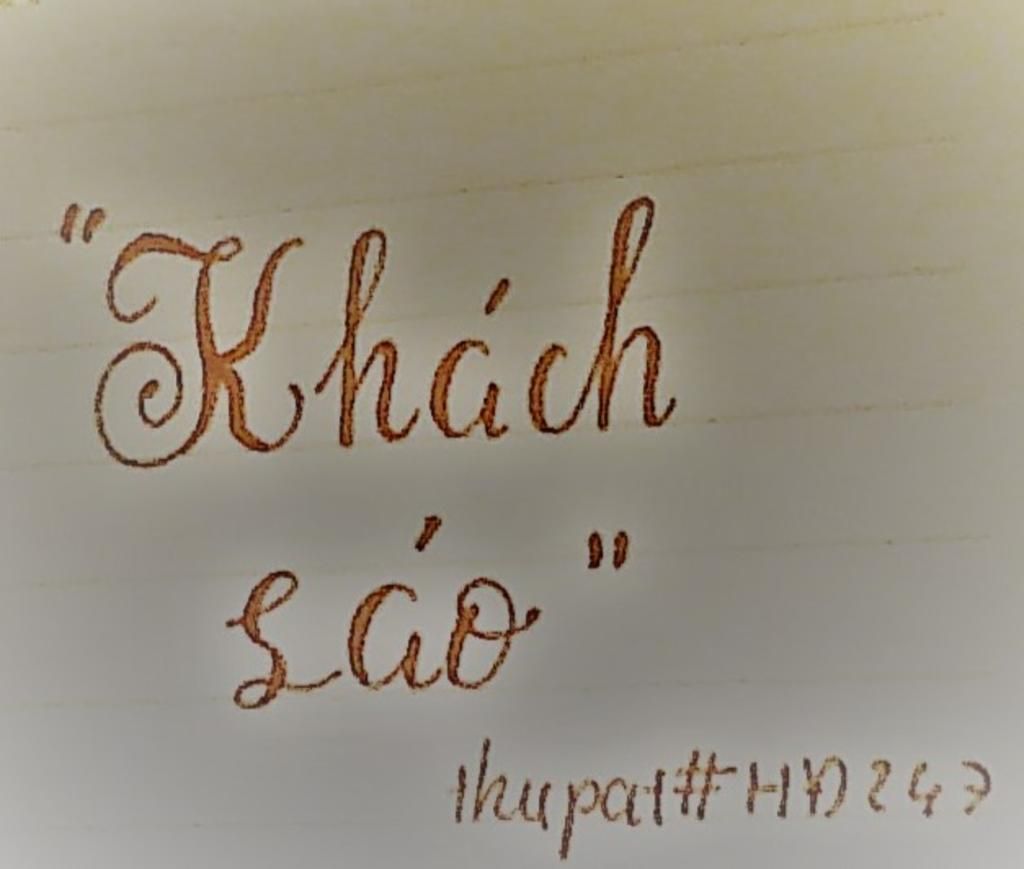 "Khách
sáo"
thupat#HD247